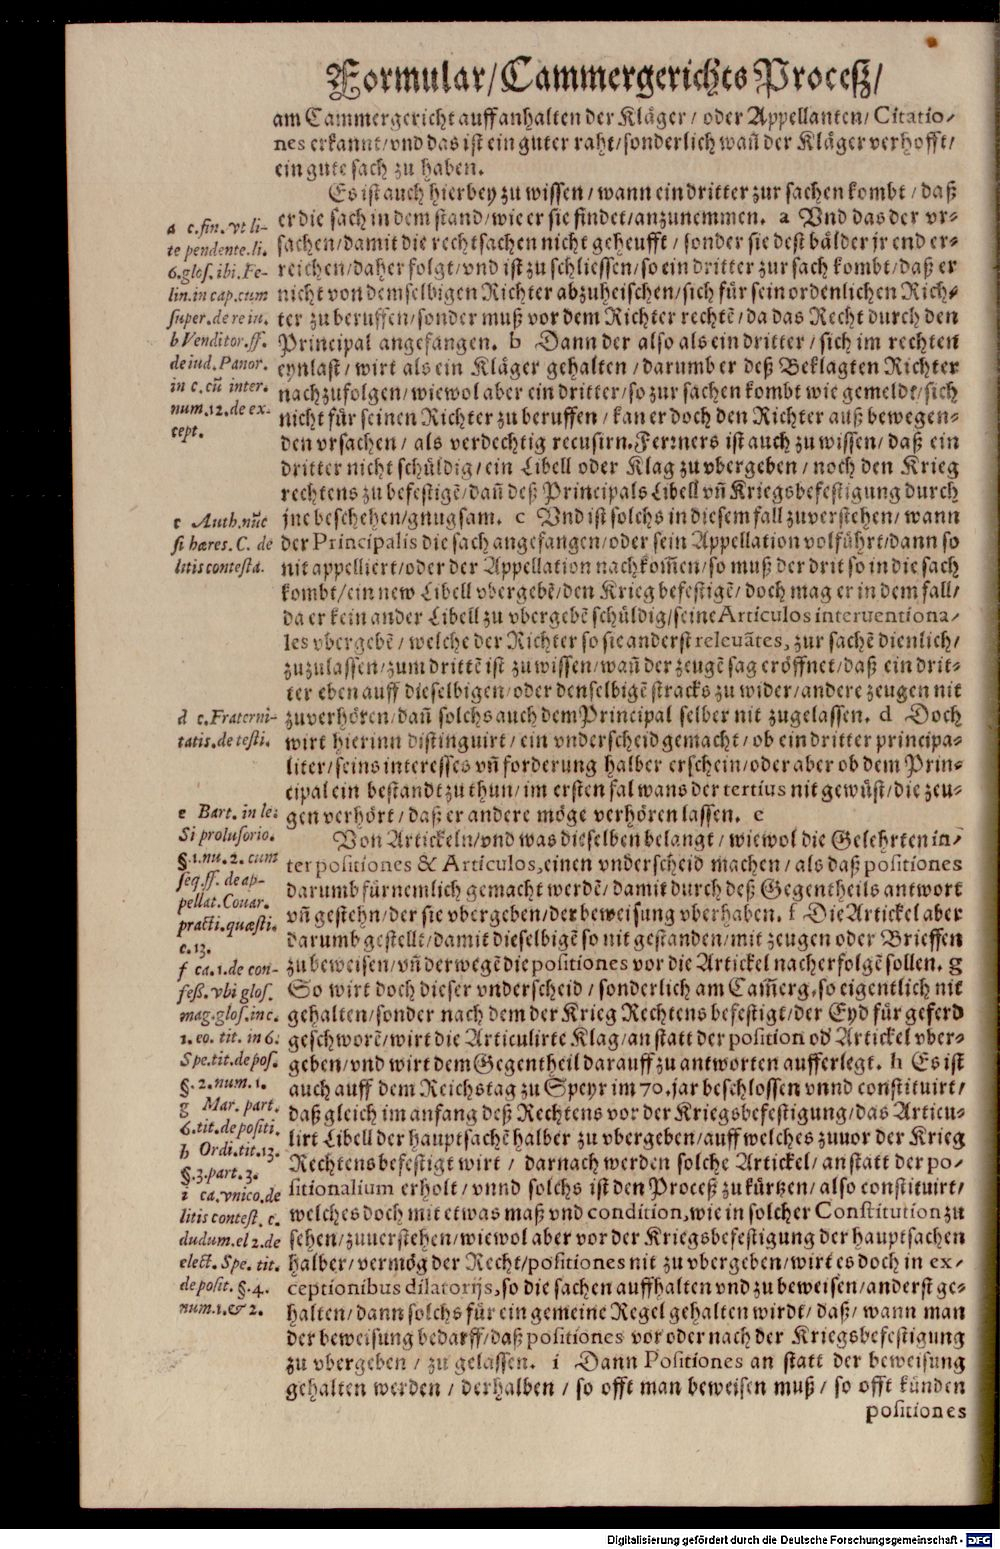 Formular/ Cammergerichts Proceß/
am Cammergericht auff anhalten der Kläger/ oder Appellanten/ Citatio-
nes erkannt/ vnd das ist ein guter raht/ sonderlich wañ der Kläger verhofft/
ein gute sach zu haben.
Es ist auch hierbey zu wissen/ wann ein dritter zur sachen kombt/ daß
er die sach in dem stand/ wie er sie findet/ anzunemmen. a Vnd das der vr-
sachen/ damit die rechtsachen nicht geheufft/ sonder sie dest bälder jr end er-
reichen/ daher folgt/ vnd ist zu schliessen/ so ein dritter zur sach kombt/ daß er
nicht von demselbigen Richter abzuheischen/ sich für sein ordenlichen Rich-
ter zu beruffen/ sonder muß vor dem Richter rechtẽ/ da das Recht durch den
Principal angefangen. b Dann der also als ein dritter/ sich im rechten
eynlast/ wirt als ein Kläger gehalten/ darumb er deß Beklagten Richter
nachzufolgen/ wiewol aber ein dritter/ so zur sachen kombt wie gemeldt/ sich
nicht für seinen Richter zu beruffen/ kan er doch den Richter auß bewegen-
den vrsachen/ als verdechtig recusirn. Ferrners ist auch zu wissen/ daß ein
dritter nicht schüldig/ ein Libell oder Klag zu vbergeben/ noch den Krieg
rechtens zu befestigẽ/ dañ deß Principals Libell vñ Kriegsbefestigung durch
jne beschehen/ gnugsam. c Vnd ist solchs in diesem fall zuverstehen/ wann
der Principalis die sach angefangen/ oder sein Appellation volführt/ dann so
nit appelliert/ oder der Appellation nachkom̃en/ so muß der drit so in die sach
kombt/ ein new Libell vbergebẽ/ den Krieg befestigẽ/ doch mag er in dem fall/
da er kein ander Libell zu vbergebẽ schüldig/ seine Articulos interuentiona-
les vbergebẽ/ welche der Richter so sie anderst releuãtes, zur sachẽ dienlich/
zuzulassen/ zum drittẽ ist zu wissen/ wañ der zeugẽ sag eröffnet/ daß ein drit-
ter eben auff dieselbigen/ oder denselbigẽ stracks zu wider/ andere zeugen nit
zuverhören/ dañ solchs auch dem Principal selber nit zugelassen. d Doch
wirt hierinn distinguirt/ ein vnderscheid gemacht/ ob ein dritter principa-
liter/ seins interesses vñ forderung halber erschein/ oder aber ob dem Prin-
cipal ein bestandt zu thun/ im ersten fal wans der tertius nit gewüst/ die zeu-
gen verhört/ daß er andere möge verhören lassen. e
Von Artickeln/ vnd was dieselben belangt/ wiewol die Gelehrten in-
ter positiones & Articulos, einen vnderscheid machen/ als daß positiones
darumb fürnemlich gemacht werdẽ/ damit durch deß Gegentheils antwort
vñ gestehn/ der sie vbergeben/ der beweisung vberhaben. f Die Artickel aber
darumb gestellt/ damit dieselbigẽ so nit gestanden/ mit zeugen oder Brieffen
zu beweisen/ vñ derwegẽ die positiones vor die Artickel nacher folgẽ sollen. g
So wirt doch dieser vnderscheid/ sonderlich am Cam̃erg. so eigentlich nit
gehalten/ sonder nach dem der Krieg Rechtens befestigt/ der Eyd für geferd
geschworẽ/ wirt die Articulirte Klag/ an statt der position od̕ Artickel vber-
geben/ vnd wirt dem Gegentheil darauff zu antworten aufferlegt. h Es ist
auch auff dem Reichstag zu Speyr im 70. jar beschlossen vnnd constituirt/
daß gleich im anfang deß Rechtens vor der Kriegsbefestigung/ das Articu-
lirt Libell der hauptsachẽ halber zu vbergeben/ auff welches zuuor der Krieg
Rechtens befestigt wirt/ darnach werden solche Artickel/ an statt der po-
sitionalium erholt/ vnnd solchs ist den Proceß zu kürtzen/ also constituirt/
welches doch mit etwas maß vnd condition, wie in solcher Constitution zu
sehen/ zuuerstehen/ wiewol aber vor der Kriegsbefestigung der hauptsachen
halber/ vermög der Recht/ positiones nit zu vbergeben/ wirt es doch in ex-
ceptionibus dilatorijs, so die sachen auffhalten vnd zu beweisen/ anderst ge-
halten/ dann solchs für ein gemeine Regel gehalten wirdt/ daß/ wann man
der beweisung bedarff/ daß positiones vor oder nach der Kriegsbefestigung
zu vbergeben/ zu gelassen. i Dann Positiones an statt der beweisung
gehalten werden/ derhalben/ so offt man beweisen muß/ so offt künden
positiones
a c. fin. vt li-
te pendente. li.
6. glos. ibi. Fe-
lin. in cap. cum
super. de re iu.
b Venditor. ff.
de iud. Panor.
in c. cũ inter.
num. 12. de ex-
cept.
c Auth. nũc
si hæres. C. de
litis contesta.
d c. Fraterni-
tatis. de testi.
e Bart. in le.
Si prolusorio.
§. 1. nu. 2. cum
seq. ff. de ap-
pellat. Couar.
practi. quæsti.
c. 13.
f ca. 1. de con-
feß. vbi glos.
mag. glos. in c.
1. eo. tit. in 6.
Spe. tit. de pos.
§. 2. num. 1.
g Mar. part.
6. tit. de positi.
h Ordi. tit. 13.
§. 3. part. 3.
i ca. vnico. de
litis contest. c.
dudum. el 2. de
elect. Spe. tit.
de posit. §. 4.
num. 1. & 2.
Digitalisierung gefördert durch die Deutsche Forschungsgemeinschaft - DFG